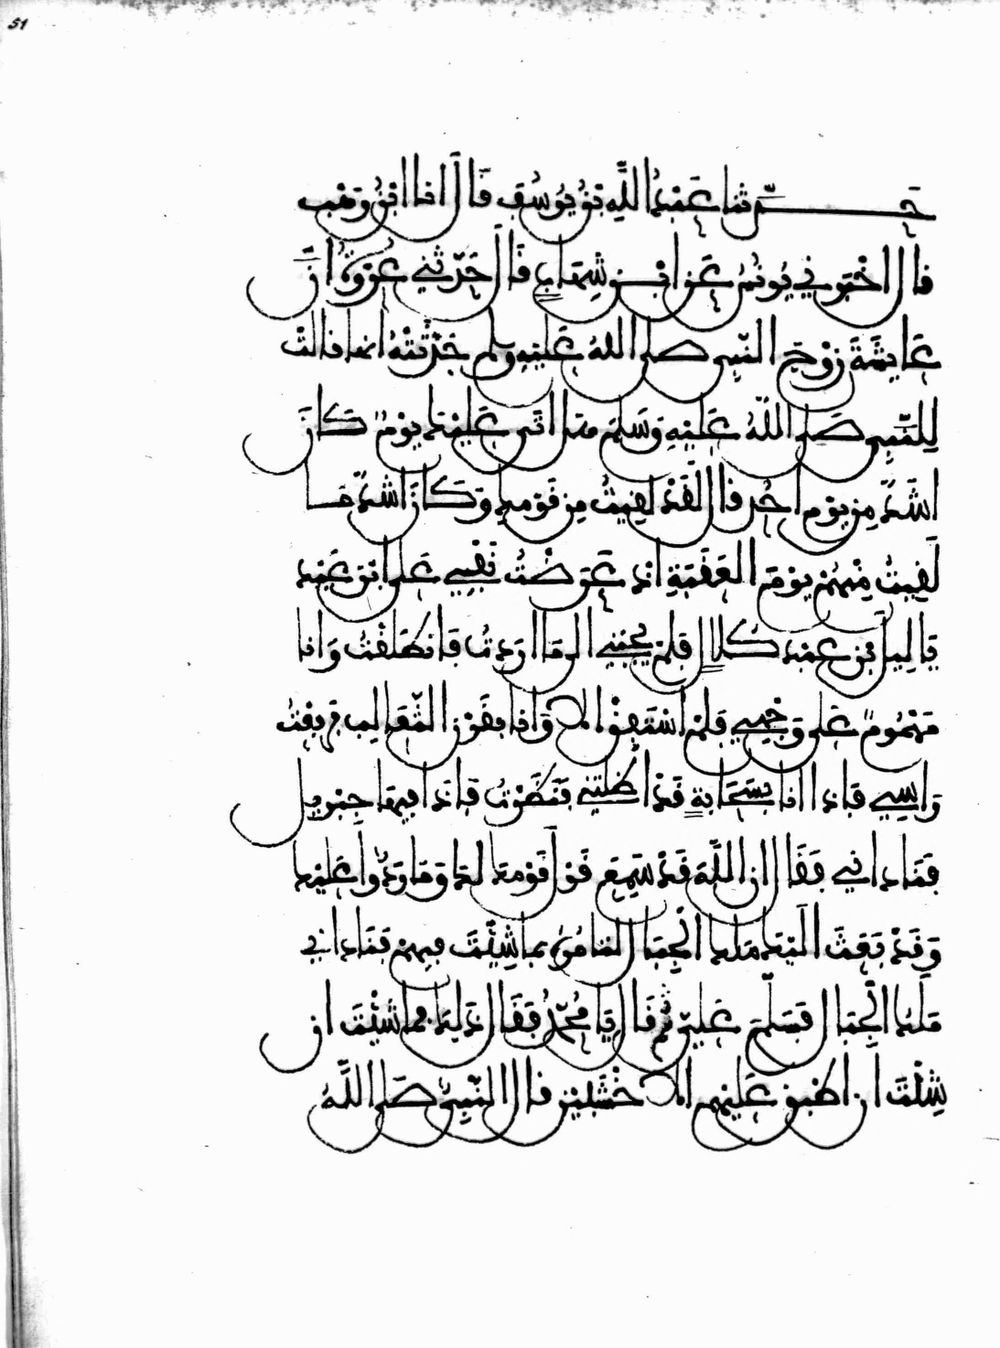 51
حدثنا عَبْدُ اللَّهِ بْنُ يُوسُفَ قَالَ انا ابْنُ وَهْبٍ
قال اخْبَرَنِي يُونُسُ عَنِ ابْنِ شِهَابٍ قَالَ حَدّثَنِي عُرْوَةُ انَّ
عَايِشَةَ زَوْجَ النّبِي صلى اللهُ عَلَيْهِ وسلم حَدّثَتْهُ انها قالتْ
لِلنَّبِي صَلى اللّهُ عَلَيْهِ وَسَلمَ هَلْ اتَى عَلَيْكَ يَوْمٌ كَانَ
اشَدّ مِنْ يَوْمِ احُدٍ قال لَقَدْ لَقِيتُ مِن قَوْمِكِ وَكَانَ اشَدّ مَا
لَقِيتُ مِنْهُمْ يَوْمَ العَقَبَةِ اذ عَرَضْتُ نَفْسِي عَلَى ابْنِ عَبْدِ
يَالِيلَ بْنِ عَبْدِ كُلَالٍ فَلَمْ يُجِبْنِي الى مَا ارَدتُ فَانطَلَقْتُ وَانا
مَهْمُومٌ عَلَى وَجْهِي فَلَمْ اسْتَفِقْ الا وَانا بِقَرْنِ الثّعَالِبِ فَرَفَعْتُ
رَاسِي فَاذا انا بِسَحَابَةٍ قَدْ اظَلّتْنِي فَنَظَرْتُ فَاذا فِيهَا جِبْرِيلُ
فَنَادانِي فَقَالَ ان اللَّهَ قَدْ سَمِعَ قَوْلَ قَوْمِكَ لَكَ وَمَا رَدُّوا عَلَيْكَ
وَقَدْ بَعَثَ الَيْكَ مَلَكَ الْجِبَالِ لتَامُرَهُ بما شِئْتَ فِيهِمْ فَنَادانِي
مَلَكُ الْجِبَالِ فَسَلّمَ عَلَيّ ثُمّ قَالَ يَا مُحَمّدُ فَقَالَ ذَلِكَ فما شِئْتَ ان
شِئْتَ ان اطْبِقَ عَلَيْهِمِ الاخْشَبَيْنِ قال النّبِيّ صَلى اللَّهُ